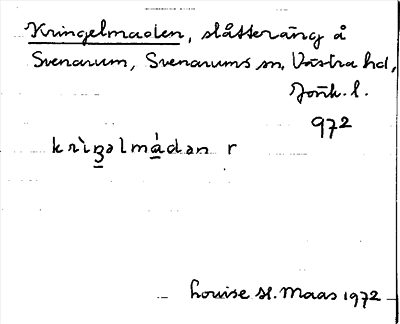 Kringelmaden, slåtteräng å
Svenarum, Svenarums sn, Västra hd,
Jönk. l.
972
krìŋəlmàdan r
Louise H. Maas 1972